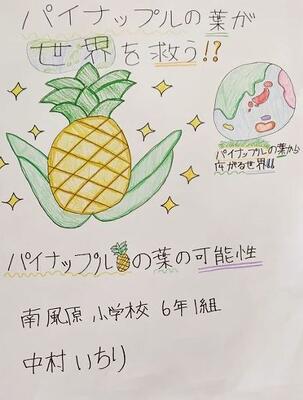 パイナップルの葉が
世界を救う!?
パイナップルの葉から
広がる世界!!
パイナップルの葉の可能性
南風原小学校 6年1組
中村いちり